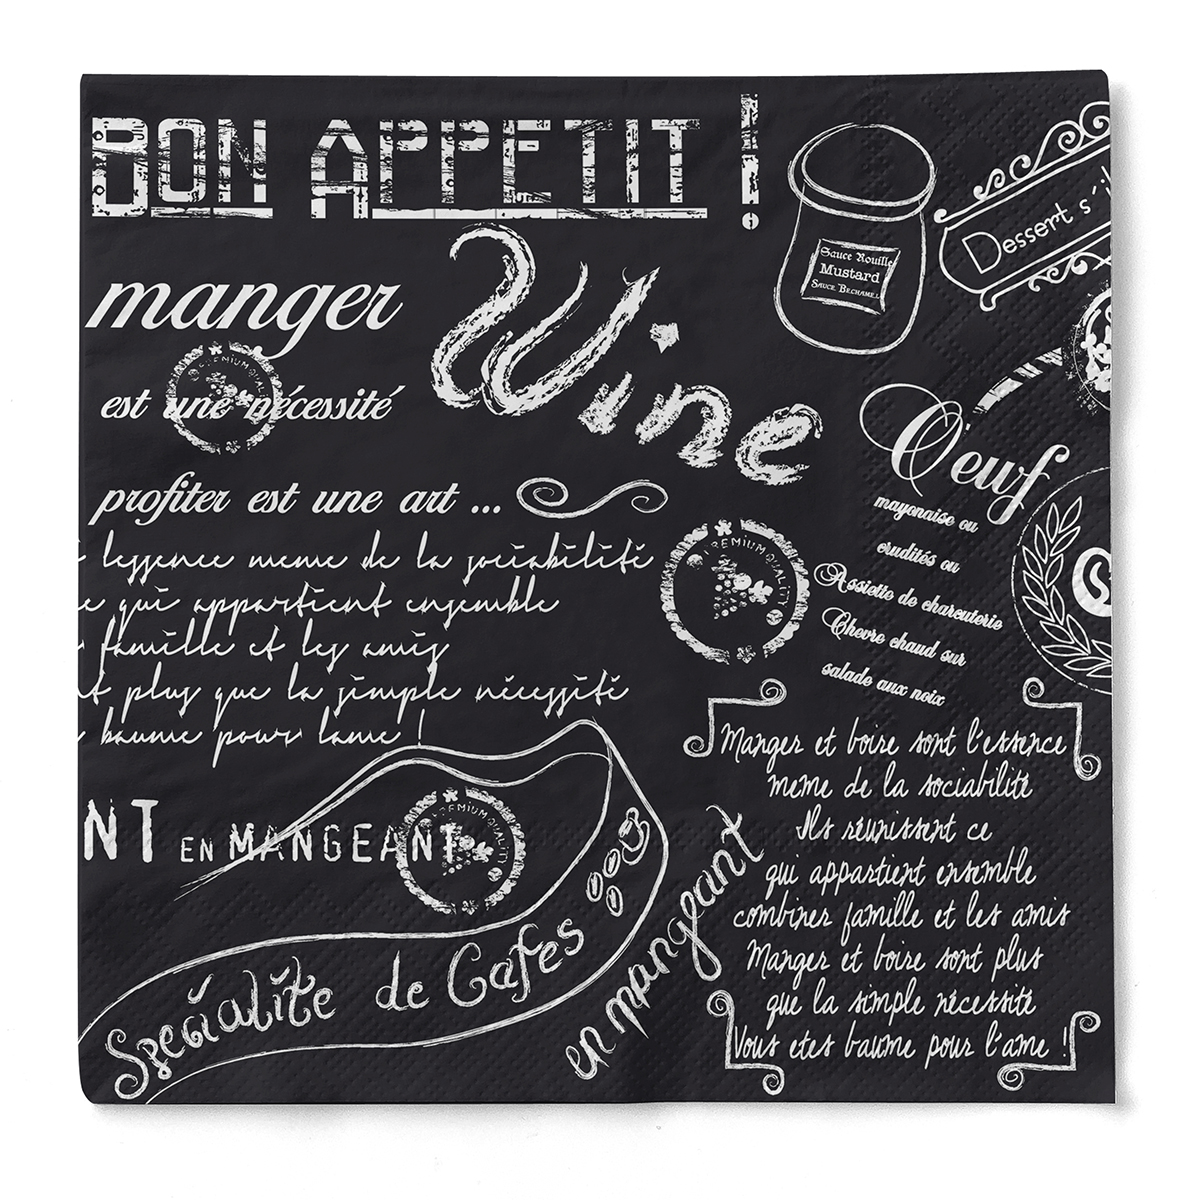 BON APPETIT !
manger
est une nécessité
profiter est une art ...
Wine
Sauce Rouille
Mustard
SAUCE BECHAMEL
Dessert s
Oeuf
mayonaise ou
crudités ou
Assiette de charcuterie
Chevre chaud sur
salade aux noix
PREMIUM QUALITY
PREMIUM QUALITY
lessence meme de la sociabilité
e qui appartient ensemble
famille et les amis
t plus que la simple nécessité
baume pour lame !
NT EN MANGEANT
PREMIUM QUALITY
Specialite de Cafes
en mangeant
Manger et boire sont l'essence
meme de la sociabilité
Ils réunissent ce
qui appartient ensemble
combiner famille et les amis
Manger et boire sont plus
que la simple nécessité
Vous etes baume pour l'ame !